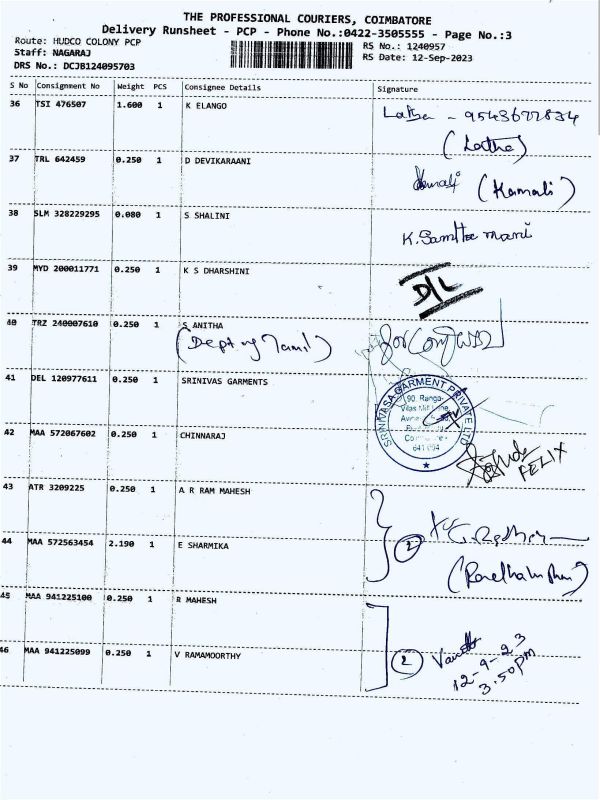 THE PROFESSIONAL COURIERS, COIMBATORE
Delivery Runsheet - PCP - Phone No.:0422-3505555 - Page No.:3
Route: HUDCO COLONY PCP
RS No.: 1240957
Staff: NAGARAJ
RS Date: 12-Sep-2023
DRS No.: DCJB124095703
S No Consignment No Weight PCS Consignee Details Signature
36 TSI 476507 1.600 1 K ELANGO
Latha - 9543677834
(Latha)
37 TRL 642459 0.250 1 D DEVIKARAANI
(Kamali)
38 SLM 328229295 0.080 1 S SHALINI
K. 
39 MYD 200011771 0.250 1 K S DHARSHINI
D/L
40 TRZ 240007610 0.250 1 S ANITHA
(Dept of Tamil)
41 DEL 120977611 0.250 1 SRINIVAS GARMENTS
SRINIVASA GARMENT PRIVATE LTD
90, Ranga
Vilas Mill
641 004
42 MAA 572067602 0.250 1 CHINNARAJ
FELIX
43 ATR 3209225 0.250 1 A R RAM MAHESH
2
44 MAA 572563454 2.190 1 E SHARMIKA
45 MAA 941225100 0.250 1 R MAHESH
2
12-9-23
3.50pm
46 MAA 941225099 0.250 1 V RAMAMOORTHY